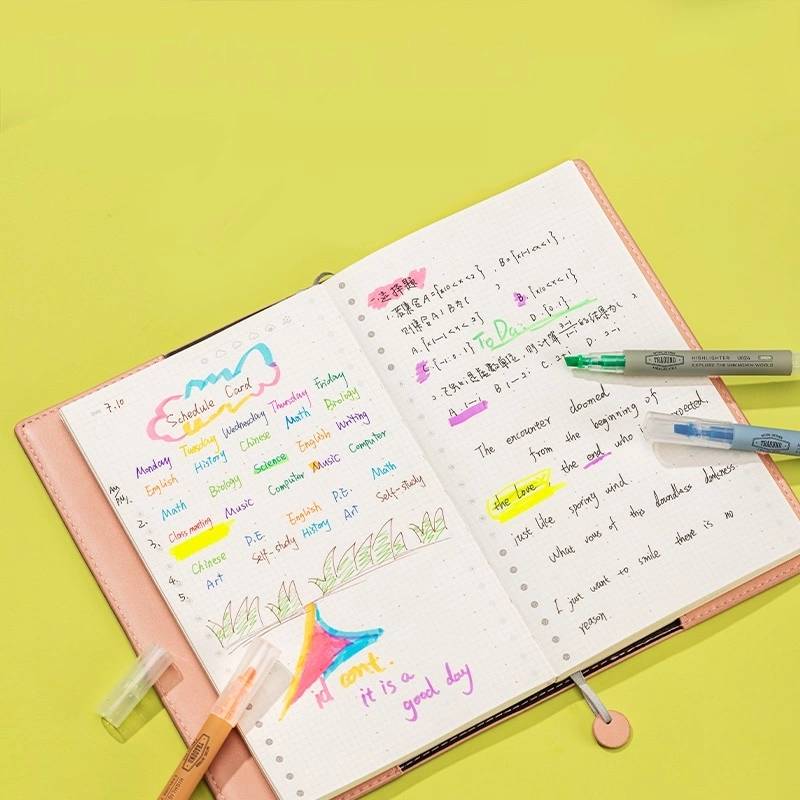 7.10
Schedule Card
Monday Tuesday Wednesday Thursday Friday
English History Chinese Math Biology
2. Math Biology Science English Writing
3. Class meeting Music Computer Music Computer
4. Chinese P.E. English P.E. Math
5. Art Self-study History Art Self-study
cont.
it is a
good day
一.选择题
1.若集合A={x|0<x<2}, B={x|-1<x<1},
则集合A∩B为( )
A. {x|-1<x<2} B. {x|0<x<1}
C. {-1.0.1} D. {0.1}
To Do:
2. 已知i是虚数单位, 则计算 的结果为( )
A. 1-i B 1-2i C. 2-i D.
The encounter doomed
from the beginning of
the love, the end who is expected,
just like spring wind.
What of this boundless darkness
I just want to smile there is no
reason.
HIGHLIGHTER
TRABUND
EXPLORE THE UNKNOWN WORLD
TRABUND
TRABUND